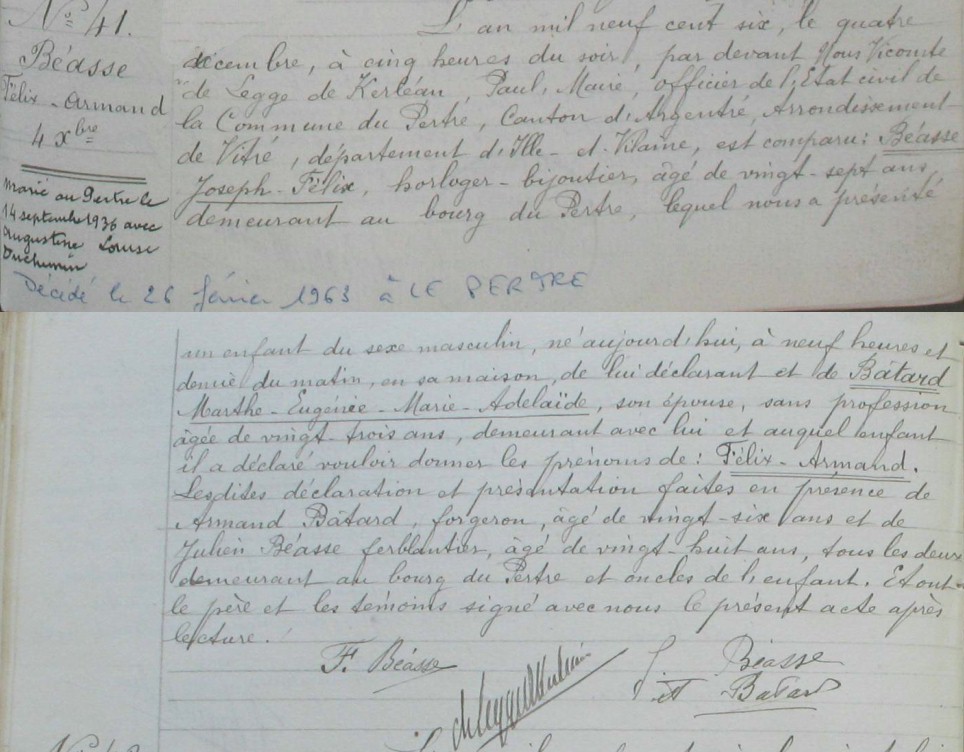 N° 41.
Béasse
Félix-Armand
4 Xbre
Marié au Pertre le
14 septembre 1936 avec
Augustine Louise
Duchemin
L'an mil neuf cent six, le quatre
décembre, à cinq heures du soir, par devant Nous Vicomte
de Legge de Kerléan, Paul, Maire, officier de l'Etat civil de
la Commune du Pertre, Canton d'Argentré, Arrondissement
de Vitré, département d'Ille-et-Vilaine, est comparu: Béasse
Joseph-Félix, horloger-bijoutier, âgé de vingt-sept ans,
demeurant au bourg du Pertre, lequel nous a présenté
Décédé le 26 février 1963 à LE PERTRE
un enfant du sexe masculin, né aujourd'hui, à neuf heures et
demie du matin, en sa maison, de lui déclarant et de Bâtard
Marthe-Eugénie-Marie-Adelaïde, son épouse, sans profession
âgée de vingt-trois ans, demeurant avec lui et auquel enfant
il a déclaré vouloir donner les prénoms de: Félix-Armand.
Lesdites déclaration et présentation faites en présence de
Armand Bâtard, forgeron, âgé de vingt-six ans et de
Julien Béasse ferblantier, âgé de vingt-huit ans, tous les deux
demeurant au bourg du Pertre et oncles de l'enfant. Et ont
le père et les témoins signé avec nous le présent acte après
lecture.
F. Béasse
J Béasse
A Batard